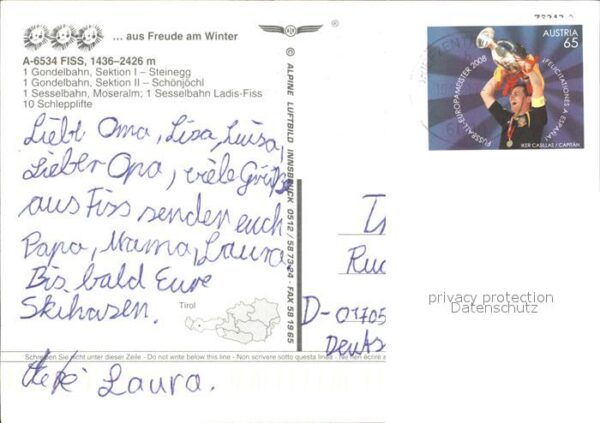 ... aus Freude am Winter
A-6534 FISS, 1436–2426 m
1 Gondelbahn, Sektion I – Steinegg
1 Gondelbahn, Sektion II – Schönjöchl
1 Sesselbahn, Moseralm; 1 Sesselbahn Ladis-Fiss
10 Schlepplifte
Liebe Oma, Lisa, Luisa,
Lieber Opa, viele Grüße
aus Fiss senden euch
Papa, Mama, Laura
Bis bald Eure
Skihasen.
Tirol
Schreiben Sie nicht unter dieser Zeile - Do not write below this line - Non scrivere sotto questa linea - Ne rien écrire
Laura.
© ALPINE LUFTBILD INNSBRUCK 0512/58 73 24 · FAX 58 19 65
AUSTRIA
65
FUSSBALL-EUROPAMEISTER 2008
¡FELICITACIONES A ESPAÑA!
IKER CASILLAS / CAPITÁN
D-01705
privacy protection
Datenschutz